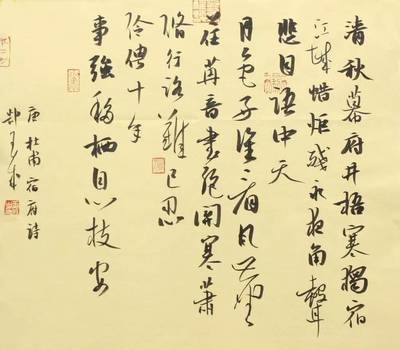 清秋幕府井梧寒獨宿
江城蜡炬殘永夜角聲
悲自語中天
月色好誰看風塵
荏苒音書絕關塞蕭
條行路難已忍
伶俜十年
事強移栖息一枝安
唐杜甫宿府詩